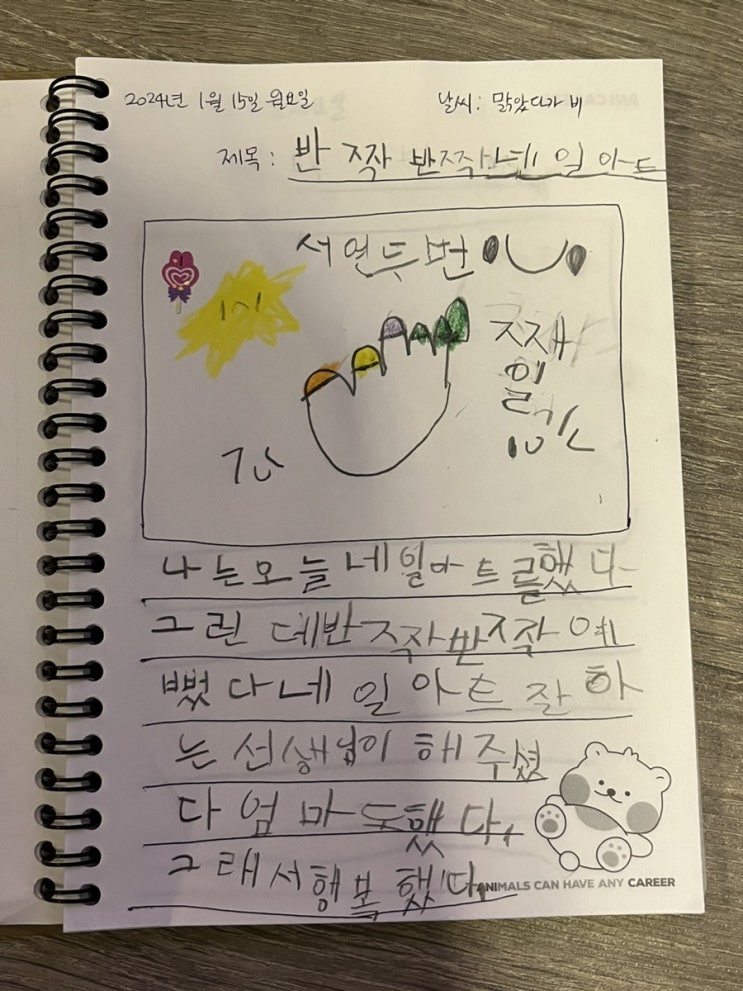 2024년 1월 15일 월요일 날씨: 맑았다가 비
제목: 반짝반짝네일아트
서연두번
나는오늘네일아트를했다
그런데반짝반짝예
뻤다네일아트잘하
는선생님이해주셨
다엄마도했다.
그래서행복했다.
ANIMALS CAN HAVE ANY CAREER